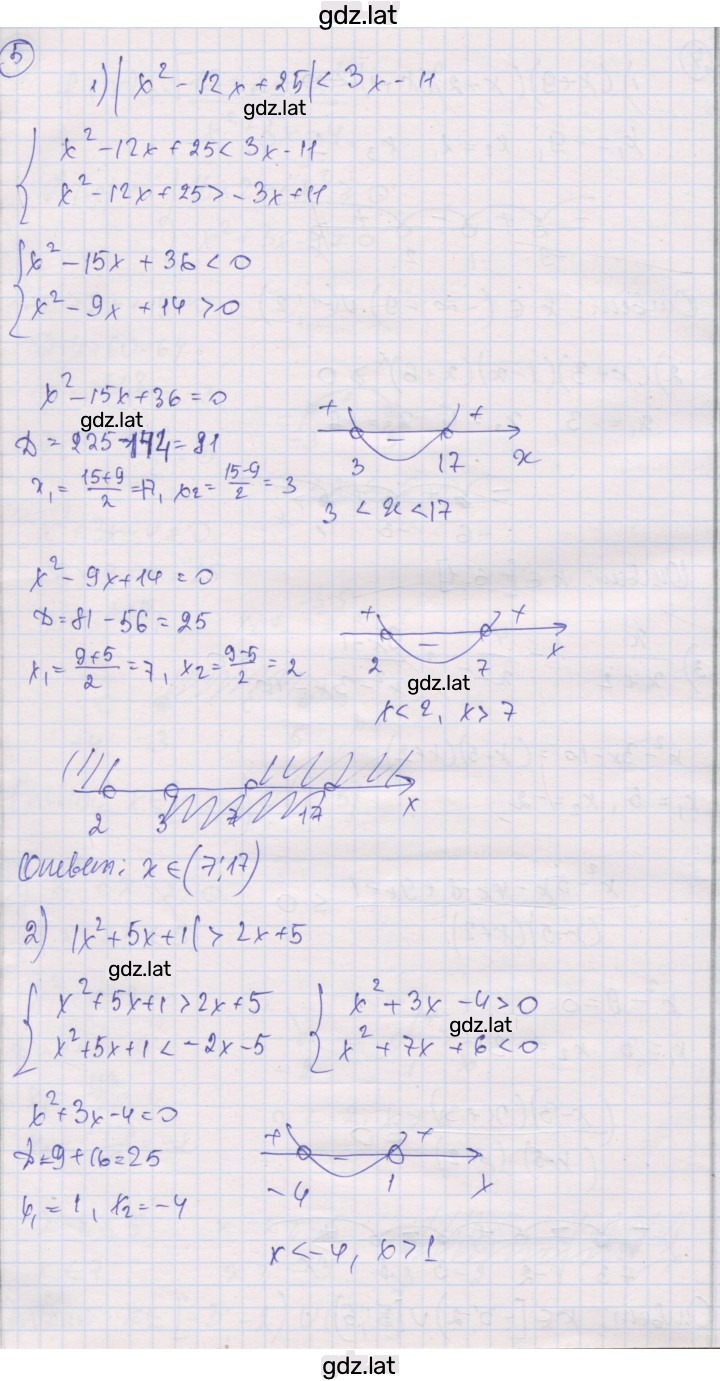 gdz.lat
5
1) | x² - 12x + 25 | < 3x - 11
gdz.lat
{ x² - 12x + 25 < 3x - 11
x² - 12x + 25 > -3x + 11
{ x² - 15x + 36 < 0
x² - 9x + 14 > 0
x² - 15x + 36 = 0
gdz.lat
D = 225 - 144 = 81
x₁ = (15+9)/2 = 17, x₂ = (15-9)/2 = 3
+ - +
3 17 x
3 < x < 17
x² - 9x + 14 = 0
D = 81 - 56 = 25
x₁ = (9+5)/2 = 7, x₂ = (9-5)/2 = 2
+ - +
2 7 x
gdz.lat
x < 2, x > 7
2 3 7 17 x
Ответ: x ∈ (7; 17)
2) |x² + 5x + 1| > 2x + 5
gdz.lat
{ x² + 5x + 1 > 2x + 5 { x² + 3x - 4 > 0
gdz.lat
x² + 5x + 1 < -2x - 5 x² + 7x + 6 < 0
x² + 3x - 4 = 0
D = 9 + 16 = 25
x₁ = 1, x₂ = -4
+ - +
-4 1 x
x < -4, x > 1
gdz.lat